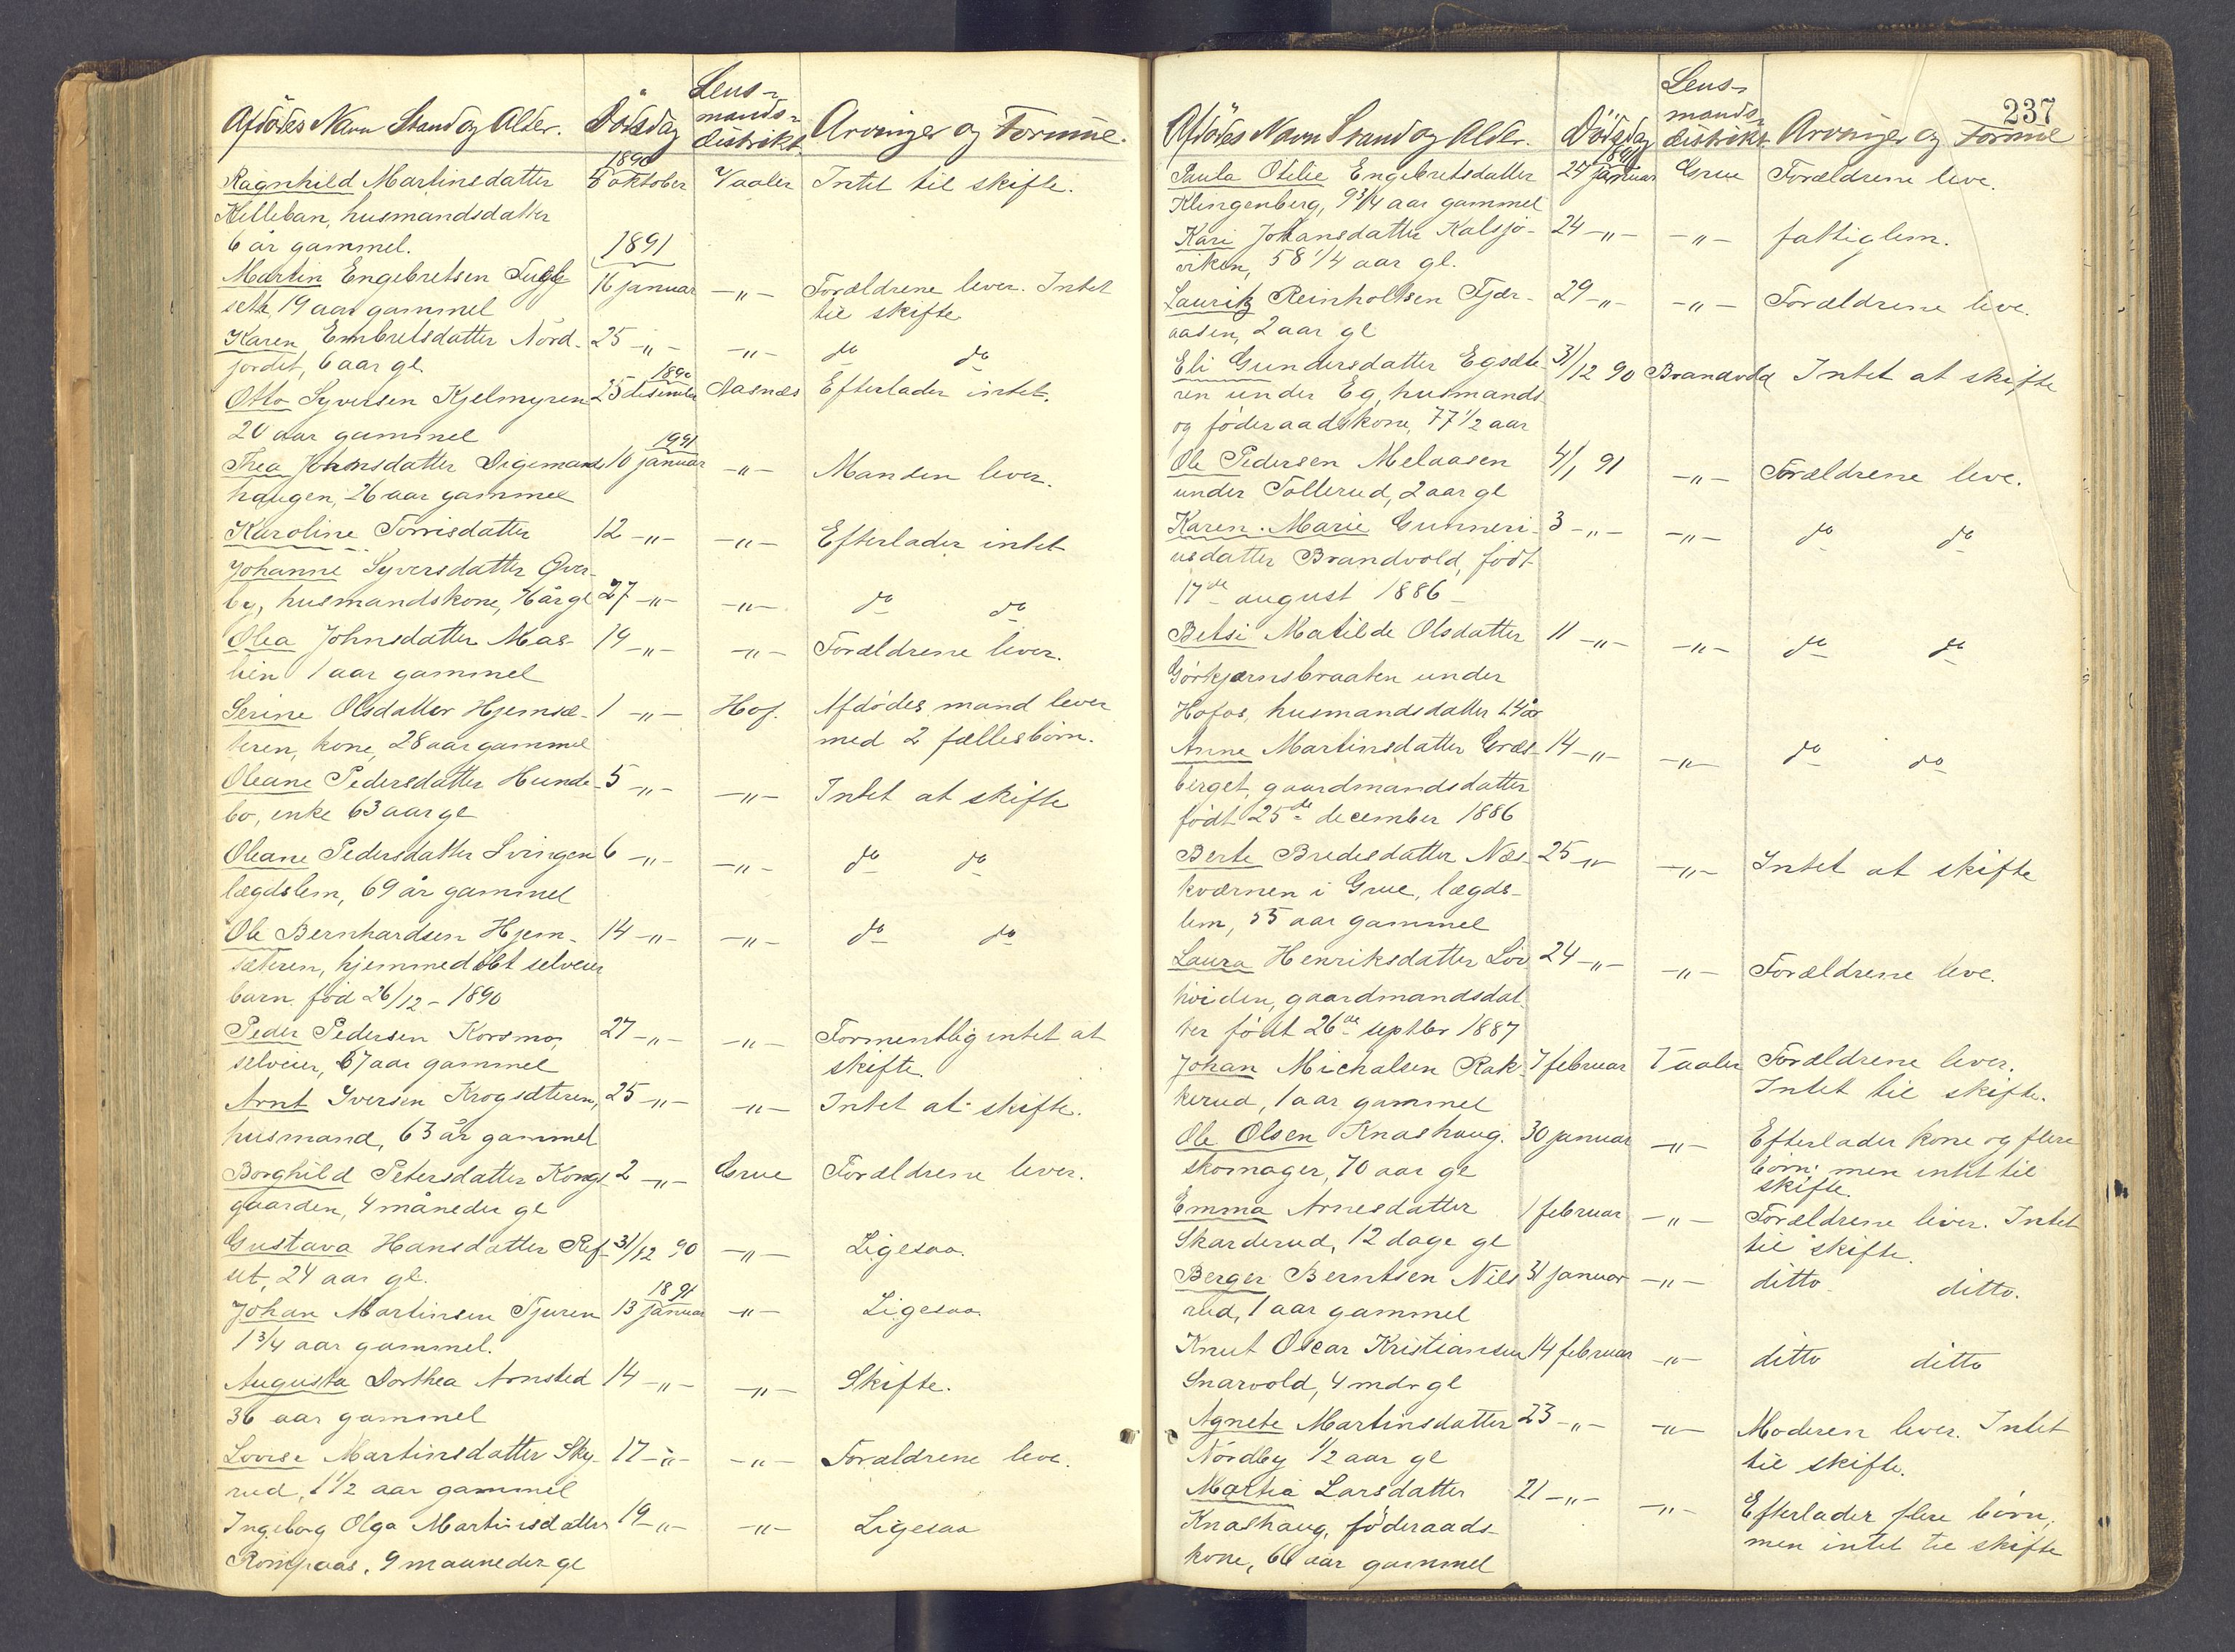 Lens-
mands-
Afdødes Navn Stand og Alder. Dødsdag distrikt. Arvinger og Formue.
1890
Ragnhild Martinsdatter 8 oktober Vaaler Intet til skifte.
Kelleban, husmandsdatter
6 år gammel. 1891
Martin Engebretsen 16 januar -"- Forældrene lever. Intet
seth, 19 aar gammel til skifte
Karen Embretsdatter Nord- 25 -"- -"- do do
jordet, 6 aar gl. 1890
Otto Syversen Kjelmyren 25 desember Aasnæs Efterlader intet.
20 aar gammel 1991
Thea Johnsdatter Digemands 10 januar -"- Manden lever.
haugen, 26 aar gammel
Karoline Torrisdatter 12 -"- -"- Efterlader intet
Johanne Syversdatter Øver-
by, husmandskone, år gl 27 -"- -"- do do
Olea Johnsdatter Mas- 19 -"- -"- Forældrene lever.
lien 1 aar gammel
Serine Olsdatter Hjemsæ- 1 -"- Hof. Afdødes mand lever
teren, kone, 28 aar gammel med 2 fællesbörn.
Oleane Pedersdatter Hunde- 5 -"- -"- Intet at skifte
bo, enke 63 aar gl
Oleane Pedersdatter Svingen 6 -"- -"- do do
lægdslem, 69 år gammel
Ole Bernhardsen Hjem- 14 -"- -"- do do
sæteren, hjemmedöbt selveier
barn. fød 26/12 - 1890
Peder Pedersen Korsmo, 27 -"- -"- Formentlig intet at
selveier, 67 aar gammel skifte.
Arnt Iversen Krogsæteren, 25 -"- -"- Intet at skifte.
husmand, 63 år gammel
Borghild Petersdatter Kongs 2 -"- Grue Forældrene lever.
gaarden, 4 måneder gl
Gustava Hansdatter Ref- 31/12 90 -"- Ligesaa.
set, 24 aar gl. 1891
Johan Martinsen Tjuren 13 januar -"- Ligesaa
1 3/4 aar gammel.
Augusta Dorthea Arnsted 14 -"- -"- Skifte.
36 aar gammel
Lovise Martinsdatter Sky- 17 -"- -"- Forældrene leve.
rud, 1 1/2 aar gammel
Ingeborg Olga Martinsdatter 19 -"- -"- Ligesaa
Rompaas. 9 maaneder gl
237
Lens-
mands-
Afdødes Navn Stand og Alder. Dødsdag distrikt Arvinger og Formue
1891
Paula Otelie Engebretsdatter 24 januar Grue Forældrene leve.
Klingenberg, 9 3/4 aar gammel
Kari Johansdatter Kalsjø- 24 -"- -"- fattiglem.
viken, 58 1/4 aar gl.
Lauritz Reinholtsen Tjær- 29 -"- -"- Forældrene leve.
aasen, 2 aar gl
Eli Gundersdatter Egsæte- 31/12 90 Brandvold Intet at skifte
ren under Eg, husmands
og føderaadskone, 77 1/2 aar
Ole Pedersen Melaasen 4/1 91 -"- Forældrene leve.
under Tollerud, 2 aar gl
Karen Marie Gunneri- 3 -"- -"- do do
usdatter Brandvold, født
17de august 1886
Betsi Matilde Olsdatter 11 -"- -"- do do
Görkjærnsbraaten under
Hofos, husmandsdatter 14 år
Anne Martinsdatter Græs- 14 -"- -"- do do
berget, gaardmandsdatter
født 25de december 1886
Berte Bredesdatter Næs- 25 -"- -"- Intet at skifte
kværnen i Grue, lægds-
lem, 55 aar gammel
Laura Henriksdatter Löv 24 -"- -"- Forældrene leve.
hviden, gaardmandsdat-
ter født 26de septbr 1887
Johan Michalsen Rak- 7 februar Vaaler Forældrene lever.
kerud, 1 aar gammel Intet til skifte.
Ole Olsen Knashaug. 30 januar -"- Efterlader kone og flere
skomager, 70 aar gl börn; men intet til
skifte.
Emma Arnesdatter 1 februar -"- Forældrene lever. Intet
Skarderud, 12 dage gl til skifte.
Berger Berntsen Nils 31 januar -"- ditto ditto.
rud, 1 aar gammel
Knut Oscar Kristiansen 14 februar -"- ditto ditto
Snarvold, 4 mdr gl
Agnete Martinsdatter 23 -"- -"- Moderen lever. Intet
Nordby 1/2 aar gl til skifte.
Martia Larsdatter 21 -"- -"- Efterlader flere börn,
Knashaug, föderaads- men intet til skifte
kone, 66 aar gammel